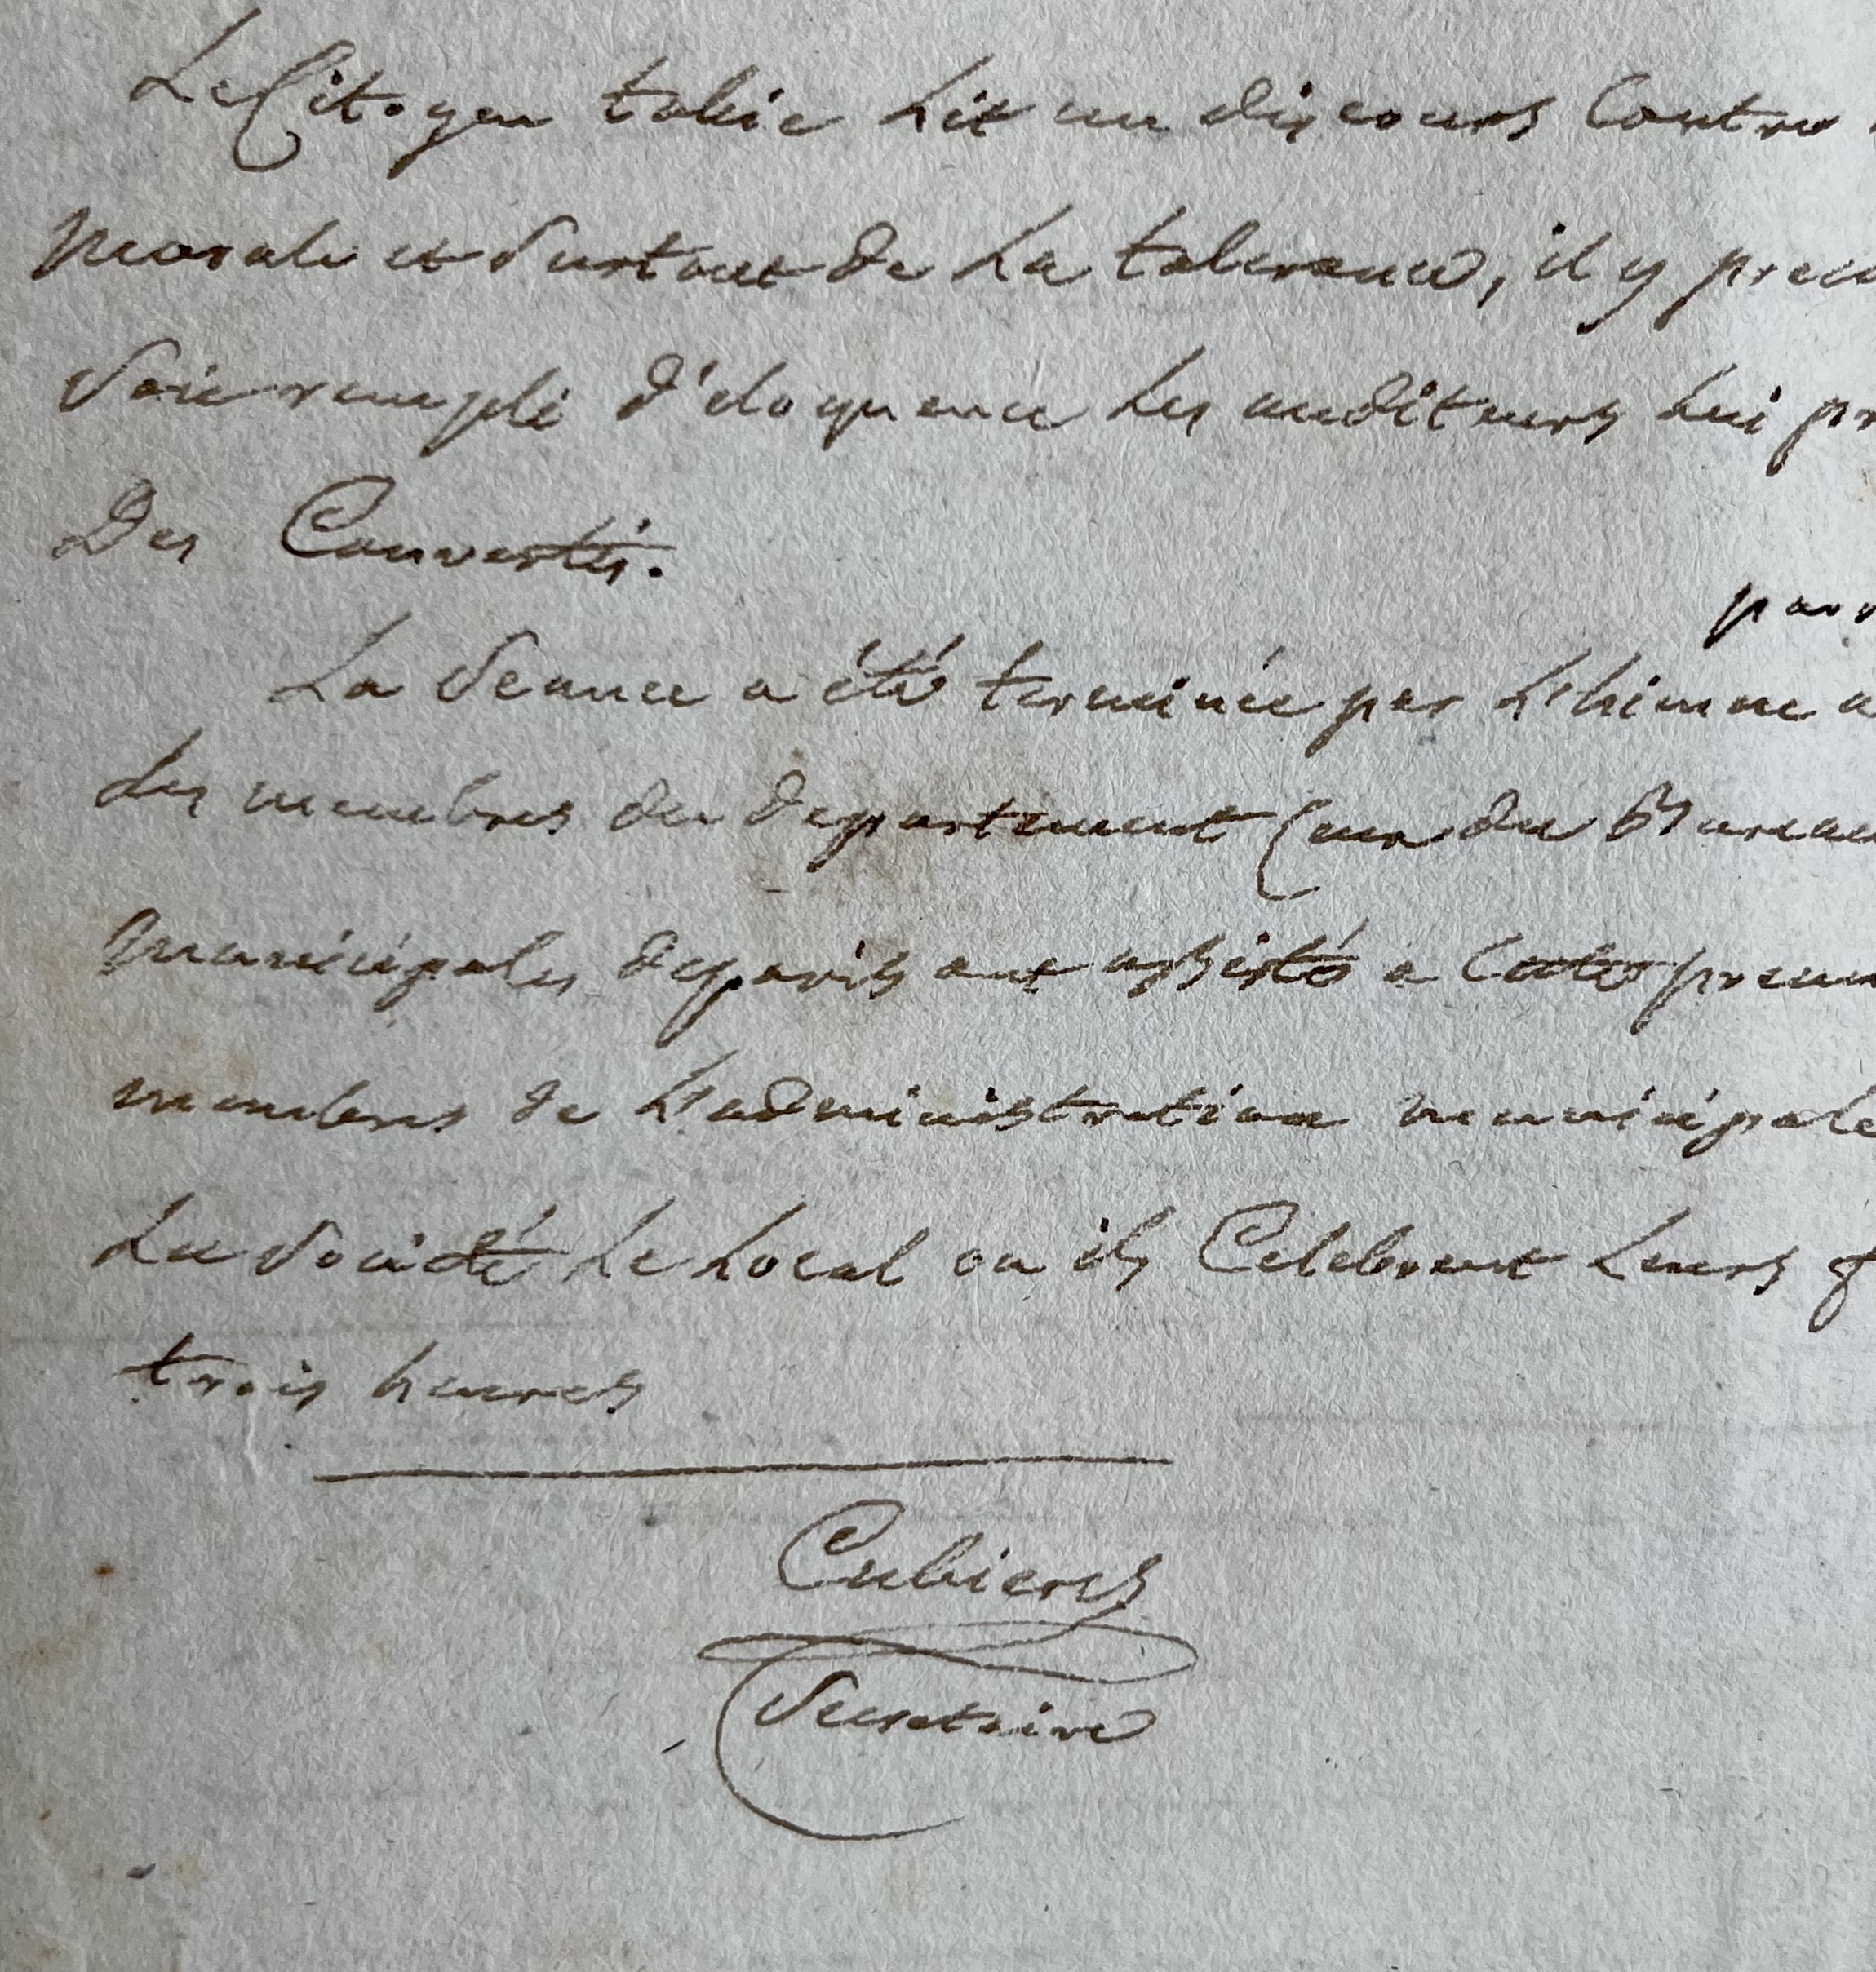 Le Citoyen tobie Lit un discours Contre
morale et Surtout de La tolerance, il y prec
Soit rempli d'eloquence Les auditeurs Lui pr
Des Convertis.
par
La Seance a été terminée par L'himne a
Les membres du departement (un du Bureau
municipales de paris ont assisté a Cette prem
membres de L'administration municipale
La Société Le Local ou ils Celebrent Leurs f
trois heures
Cubieres
Secretaire